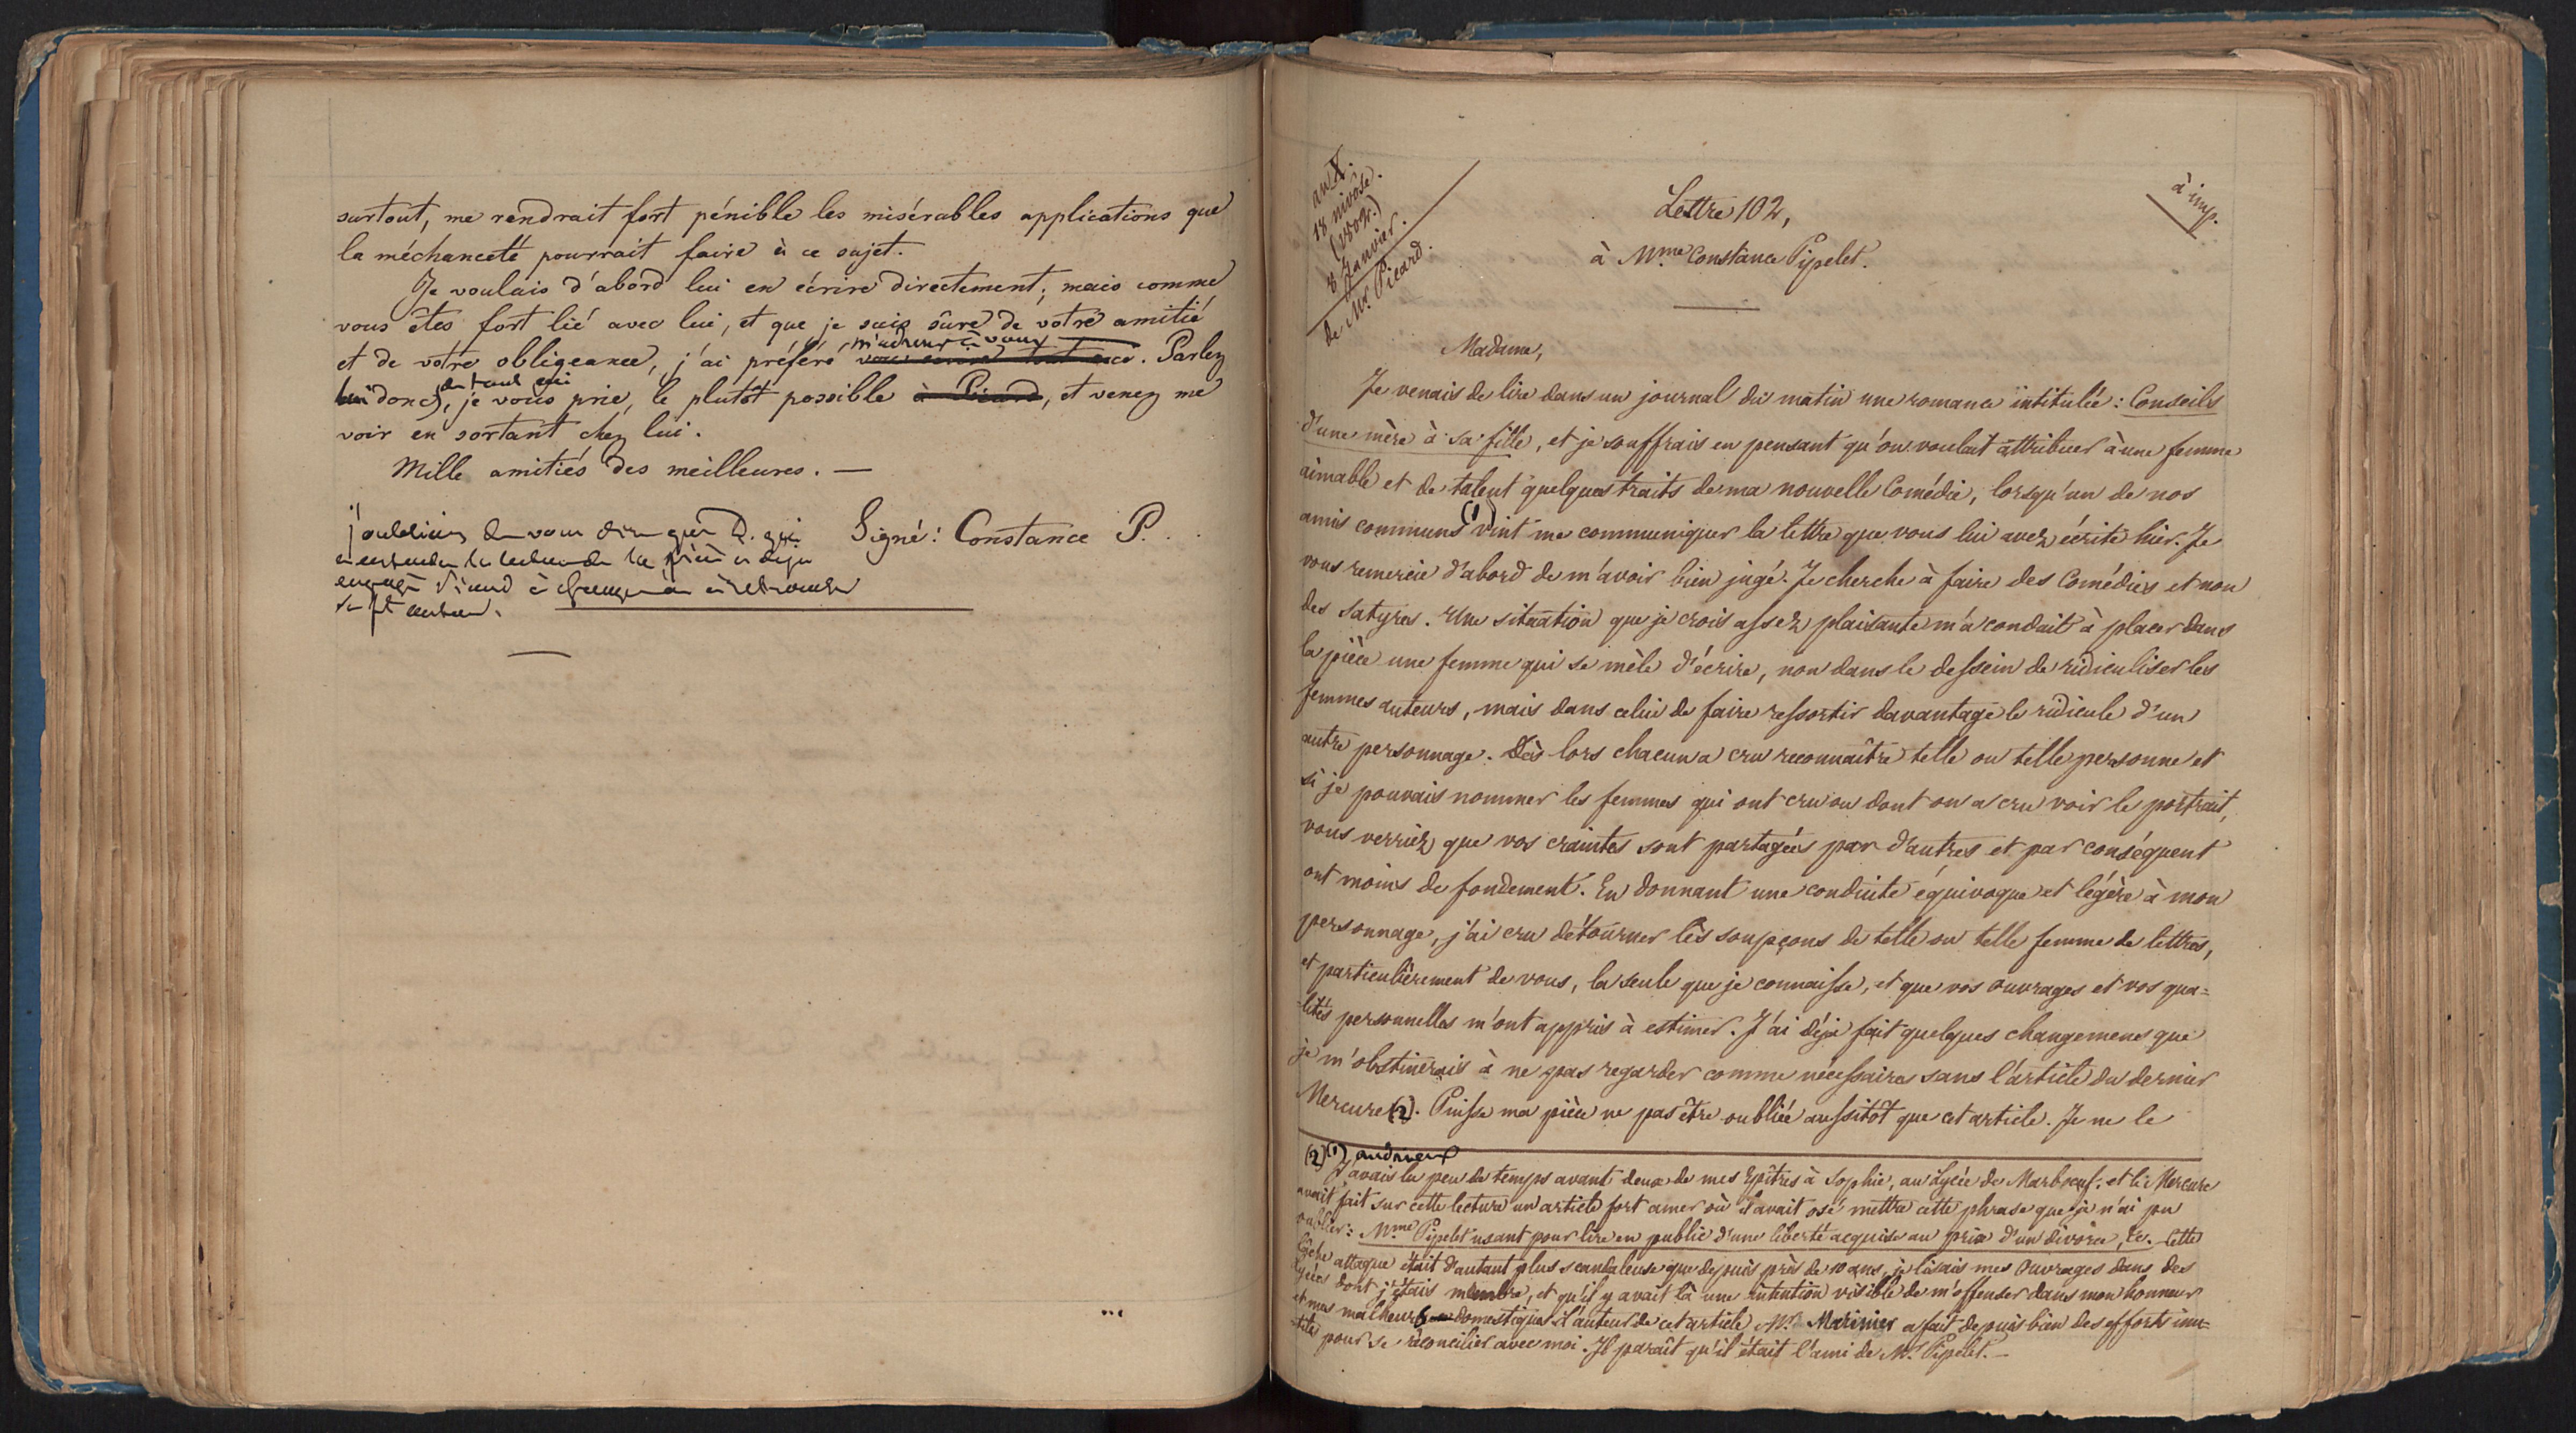 surtout, me rendrait fort pénible les misérables applications que
la méchanceté pourrait faire à ce sujet.
Je voulais d'abord lui en écrire directement; mais comme
vous êtes fort lié avec lui, et que je suis sûre de votre amitié
m'adresser à vous
et de votre obligeance, j'ai préféré vous écrire tout ceci. Parlez
de tout ceci
lui donc, je vous prie, le plutôt possible à Picard, et venez me
voir en sortant chez lui.
Mille amitiés des meilleures. —
Signé: Constance P.
j'oubliais de vous dire que D. qui
a entendu la lecture de la pièce a déjà
engagé Picard à changer
an X.
18 nivôse.
(1802.)
8 Janvier.
de Mr. Picard.
à imp.
Lettre 102,
à Mme Constance Pipelet.
Madame,
Je venais de lire dans un journal du matin une romance intitulée: Conseils
d'une mère à sa fille, et je souffrais en pensant qu'on voulait attribuer à une femme
aimable et de talent quelques traits de ma nouvelle Comédie, lorsqu'un de nos
amis communs (1) vint me communiquer la lettre que vous lui avez écrite hier. Je
vous remercie d'abord de m'avoir bien jugé. Je cherche à faire des Comédies et non
des Satyres. Une situation que je crois assez plaisante m'a conduit à placer dans
la pièce une femme qui se mêle d'écrire, non dans le dessein de ridiculiser les
femmes auteurs, mais dans celui de faire ressortir davantage le ridicule d'un
autre personnage. Dès lors chacun a cru reconnaître telle ou telle personne et
si je pouvais nommer les femmes qui ont cru ou dont on a cru voir le portrait,
vous verriez que vos craintes sont partagées par d'autres et par conséquent
ont moins de fondement. En donnant une conduite équivoque et légère à mon
personnage, j'ai cru détourner les soupçons de telle ou telle femme de lettres,
et particulièrement de vous, la seule que je connaisse, et que vos ouvrages et vos qua=
=lités personnelles m'ont appris à estimer. J'ai déjà fait quelques changemens que
je m'obstinerais à ne pas regarder comme nécessaires sans l'article du dernier
Mercure (2). Puisse ma pièce ne pas être oubliée aussitôt que cet article. Je ne le
(2) (1) andrieux
J'avais lu peu de temps avant deux de mes Epîtres à Sophie, au Lycée de Marboeuf. et le Mercure
avait fait sur cette lecture un article fort amer où il avait osé mettre cette phrase que je n'ai pu
oublier: Mme Pipelet usant pour lire en public d'une liberté acquise au prix d'un divorce, &c. Cette
lâche attaque était d'autant plus scandaleuse que depuis près de 10 ans, je lisais mes Ouvrages dans des
Lycées dont j'étais membre, et qu'il y avait là une intention visible de m'offenser dans mon honneur
et mes malheurs domestiques. L'auteur de cet article Mr. Marinier a fait depuis bien des efforts inu=
=tiles pour se réconcilier avec moi. Il parait qu'il était l'ami de Mr. Pipelet. —